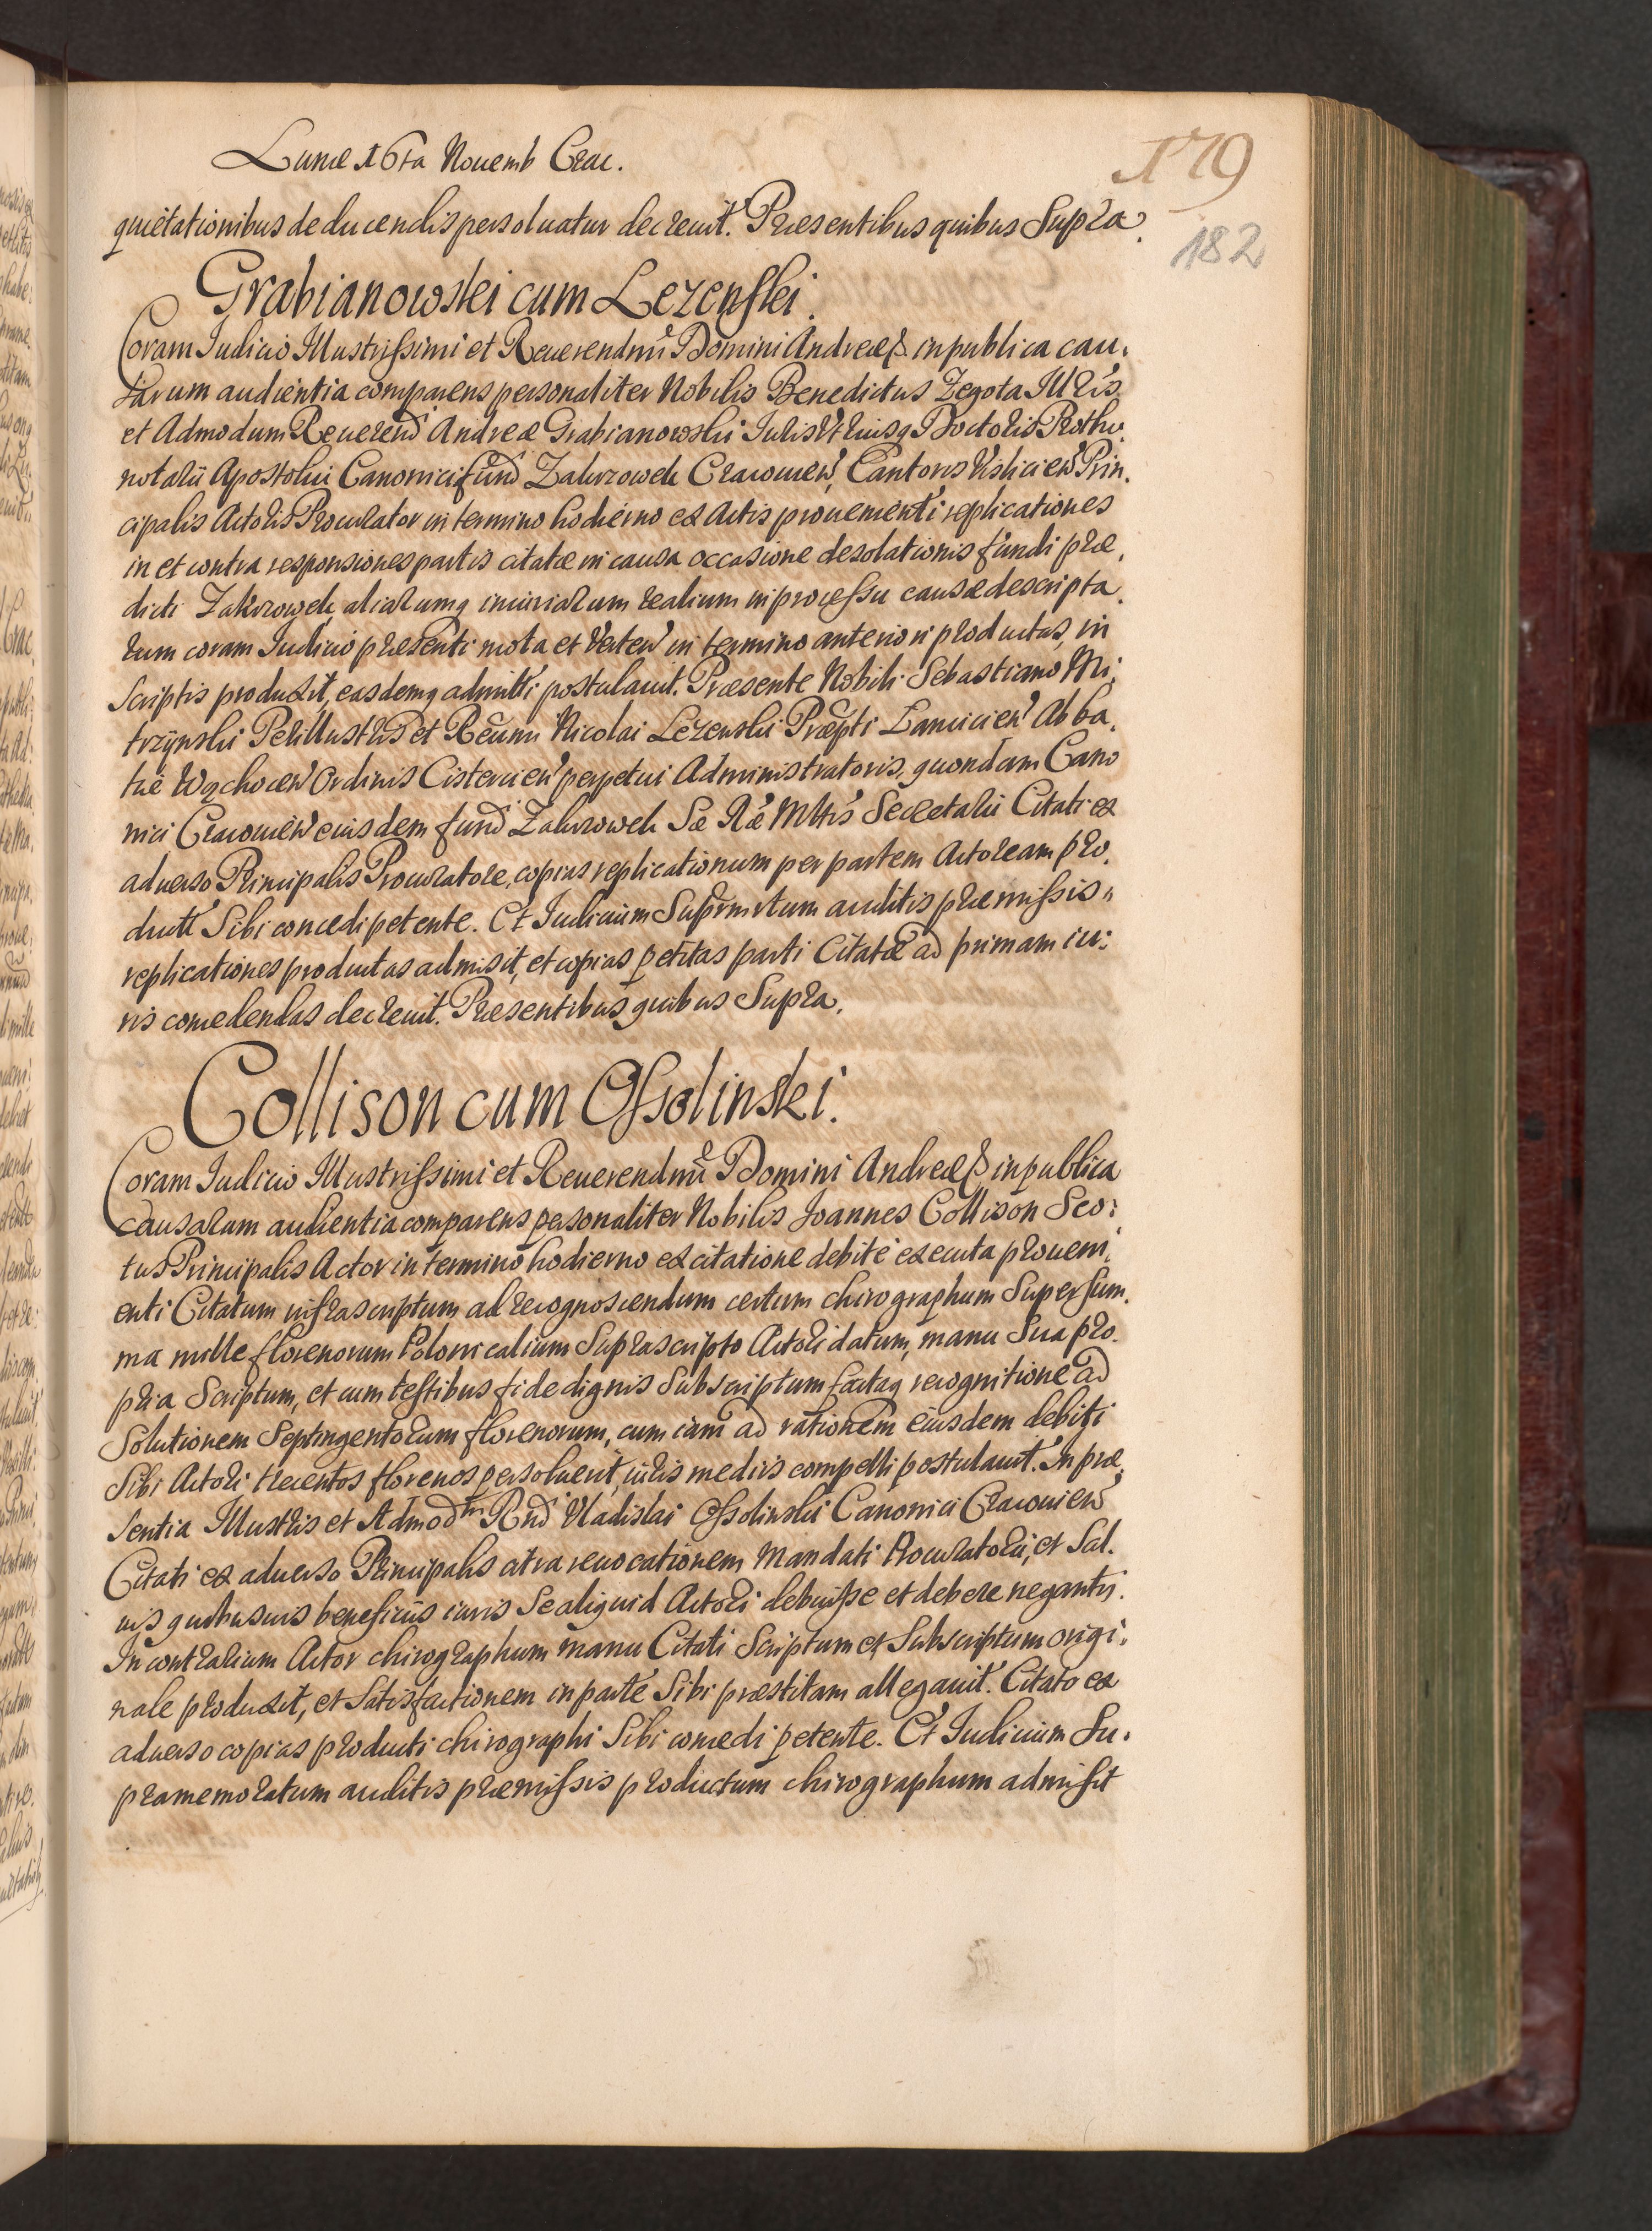 Lunæ 16ta Nouemb Crac.
179
182
quietationibus deducendis persoluatur decreuit. Præsentibus quibus Supra.
Grabianowski cum Lezenski.
Coram Iudicio Illustrissimi et Reuerendmi Domini Andreæ & in publica cau,
sarum audientia comparens personaliter Nobilis Benedictus Zegota Illris
et Admodum Reuerend Andreæ Grabianowski Iuris Utriusq Doctoris Protho
notarii Apostolici Canonici fund Zakrzowek Cracouien, Cantoris Visliciem Prin,
cipalis Actoris Procurator in termino hodierno ex Actis proueniemti replicationes
in et contra responsiones partis citatæ in causa occasione desolationis fundi præ,
dicti Zakrzowek, aliarumq iniuriarum realium in processu causæ descripta,
rum coram Iudicio præsenti mota et Verten in termino anteriori productas, in
Scriptis produxit, easdemq admitti postulauit. Præsente Nobili Sebastiano Mi,
trzynski Perillustris et Reumi Nicolai Lezenski Præpti Lanicien Abba,
tiæ Wąchocen Ordinis Cistercien perpetui Administratoris, quondam Cano
nici Cracouien eiusdem fund Zakrzowek Sæ Ræ Mttis Secretarii Citati ex
aduerso Principalis Procuratore, copias replicationum per partem Actoream pro,
dutt Sibi concedi petente. Et Iudicium Suprmrtum auditis præmissis
replicationes productas admisit, et copias petitas parti Citatæ ad primam iu:
ris concedendas decreuit. Præsentibus quibus Supra.
Collison cum Ossolinski.
Coram Iudicio Illustrissimi et Reuerendmi Domini Andreæ & in publica
causarum audientia comparens personaliter Nobilis Joannes Collison Sco:
tus Principalis Actor in termino hodierno ex citatione debite executa proueni,
enti Citatum infrascriptum ad recognoscendum certum chirographum Super sum,
ma mille florenorum Polonicalium Suprascripto Actori datum, manu Sua pro
pria Scriptum, et cum testibus fide dignis Subscriptum factaq recognitione ad
Solutionem Septingentorum florenorum, cum iam ad rationem eiusdem debiti
Sibi Actori trecentos florenos persoluerit, iuris mediis compelli postulauit. In præ,
sentia Illustris et Admodm Rnd Vladislai Ossolinski Canonici Cracouien
Citati ex aduerso Principalis citra reuocationem Mandati Procuratorii, et Sal,
uis quibusuis beneficiis iuris Se aliquid Actori debuisse et debere negantis.
In contrarium Actor chirographum manu Citati Scriptum et Subscriptum origi,
nale produxit, et Satisfactionem in parte Sibi præstitam allegauit. Citato ex
aduerso copias producti chirographi Sibi concedi petente. Et Iudicium Su,
pramemoratum auditis præmissis productum chirographum admisit